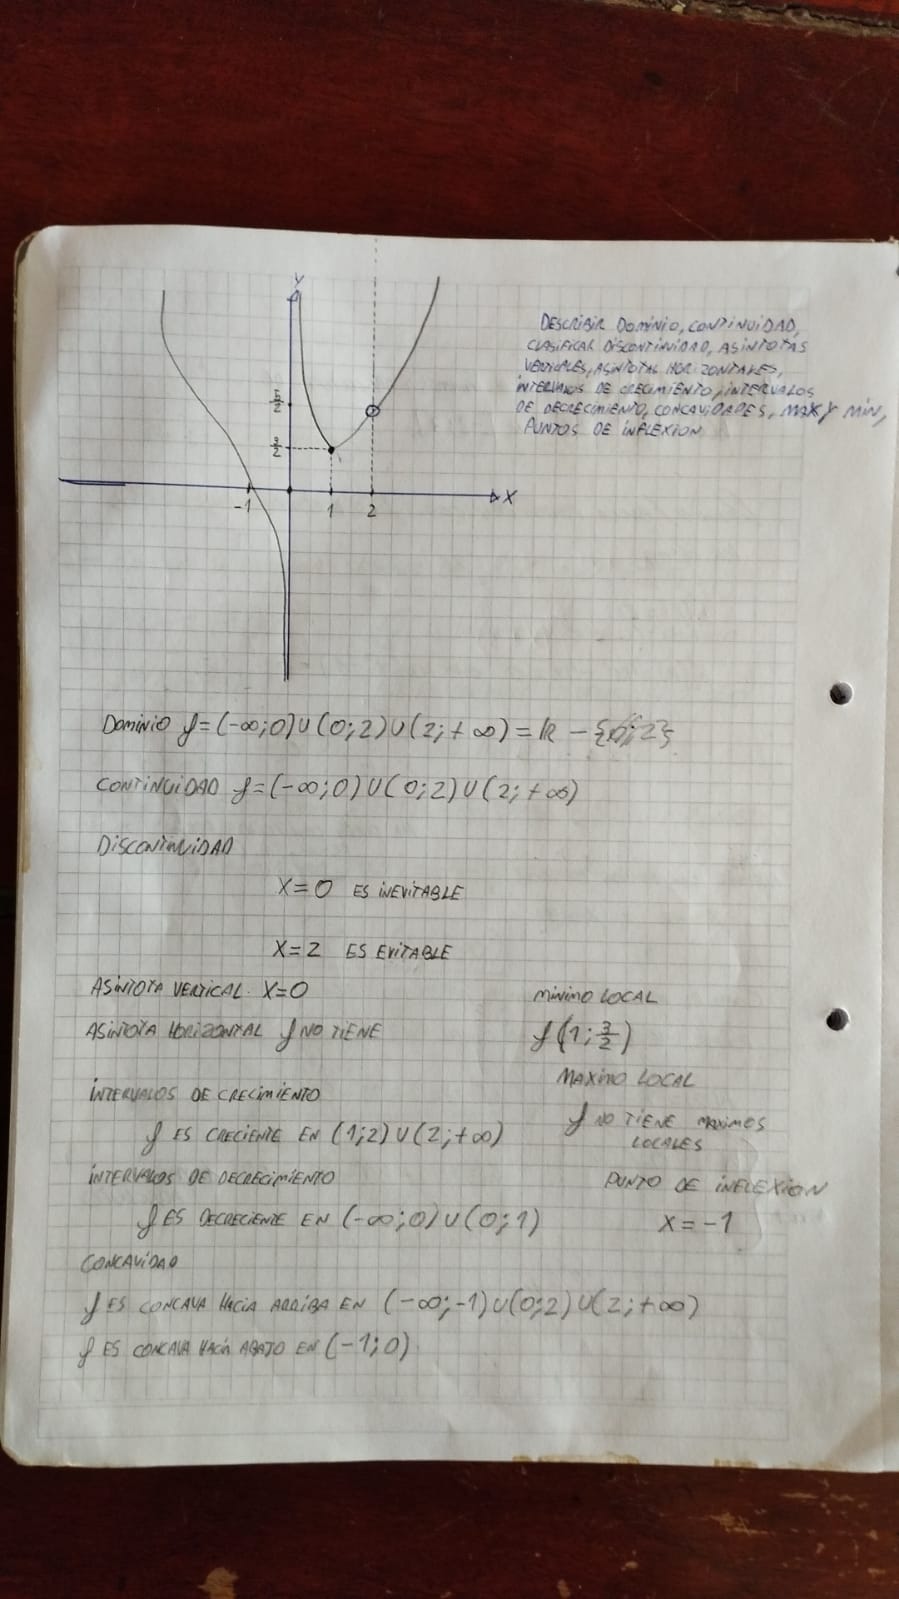 Y
DESCRIBIR DOMINIO, CONTINUIDAD,
CLASIFICAR DISCONTINUIDAD, ASINTOTAS
VERTICALES, ASINTOTAS HORIZONTALES,
INTERVALOS DE CRECIMIENTO, INTERVALOS
DE DECRECIMIENTO, CONCAVIDADES, MAX Y MIN,
PUNTOS DE INFLEXION
3/2
-1 1 2 X
DOMINIO f=(-∞;0)∪(0;2)∪(2;+∞)=R-{0;2}
CONTINUIDAD f=(-∞;0)∪(0;2)∪(2;+∞)
DISCONTINUIDAD
X=0 ES INEVITABLE
X=2 ES EVITABLE
ASINTOTA VERTICAL X=0
ASINTOTA HORIZONTAL f NO TIENE
INTERVALOS DE CRECIMIENTO
f ES CRECIENTE EN (1;2)∪(2;+∞)
INTERVALOS DE DECRECIMIENTO
f ES DECRECIENTE EN (-∞;0)∪(0;1)
CONCAVIDAD
f ES CONCAVA HACIA ARRIBA EN (-∞;-1)∪(0;2)∪(2;+∞)
f ES CONCAVA HACIA ABAJO EN (-1;0)
MINIMO LOCAL
f(1;3/2)
MAXIMO LOCAL
f NO TIENE MAXIMOS
LOCALES
PUNTO DE INFLEXION
X=-1